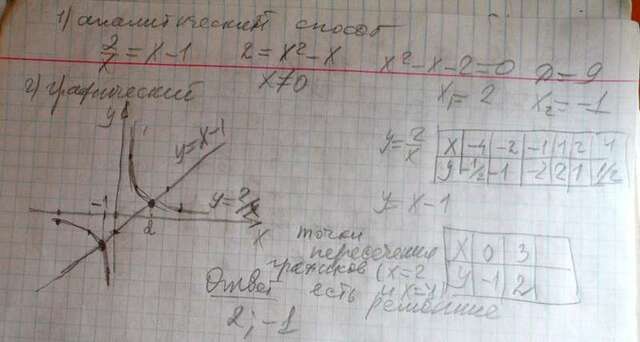 1) аналитический способ
2/x = x-1 2 = x²-x x²-x-2=0 D=9
x≠0 x₁=2 x₂=-1
2) графический
y
y=x-1
y=2/x
-1
2
x
y=2/x
x -4 -2 -1 1 2 4
y -1/2 -1 -2 2 1 1/2
y=x-1
x 0 3
y -1 2
точки
пересечения
графиков (x=2
есть и x=-1)
решение
Ответ
2; -1